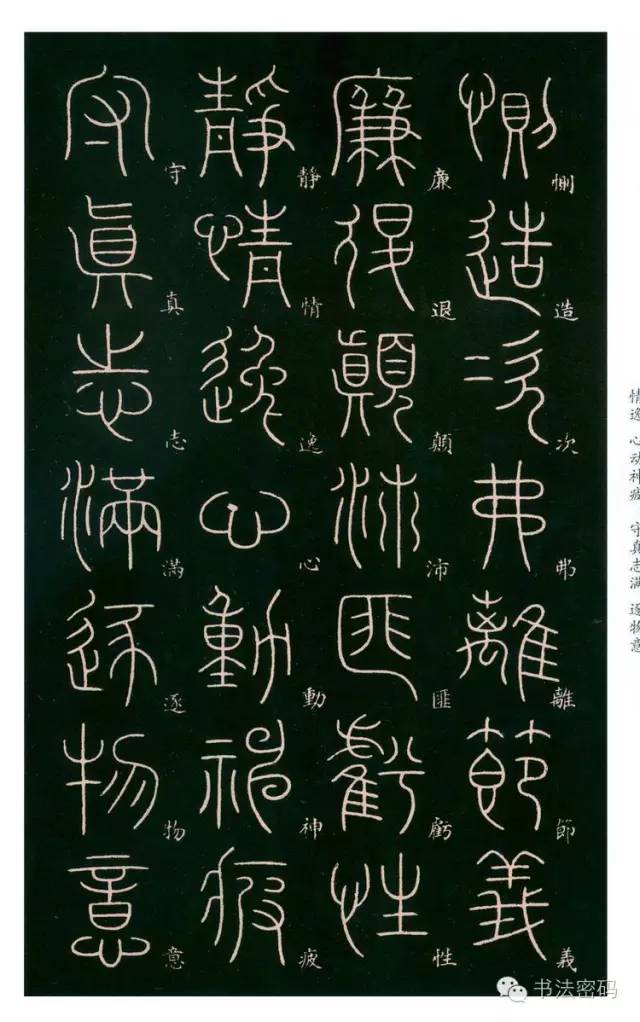 惻造次弗離節義
廉退顛沛匪虧性
靜情逸心動神疲
守真志滿逐物意
情逸 心动神疲 守真志满 逐物意
书法密码